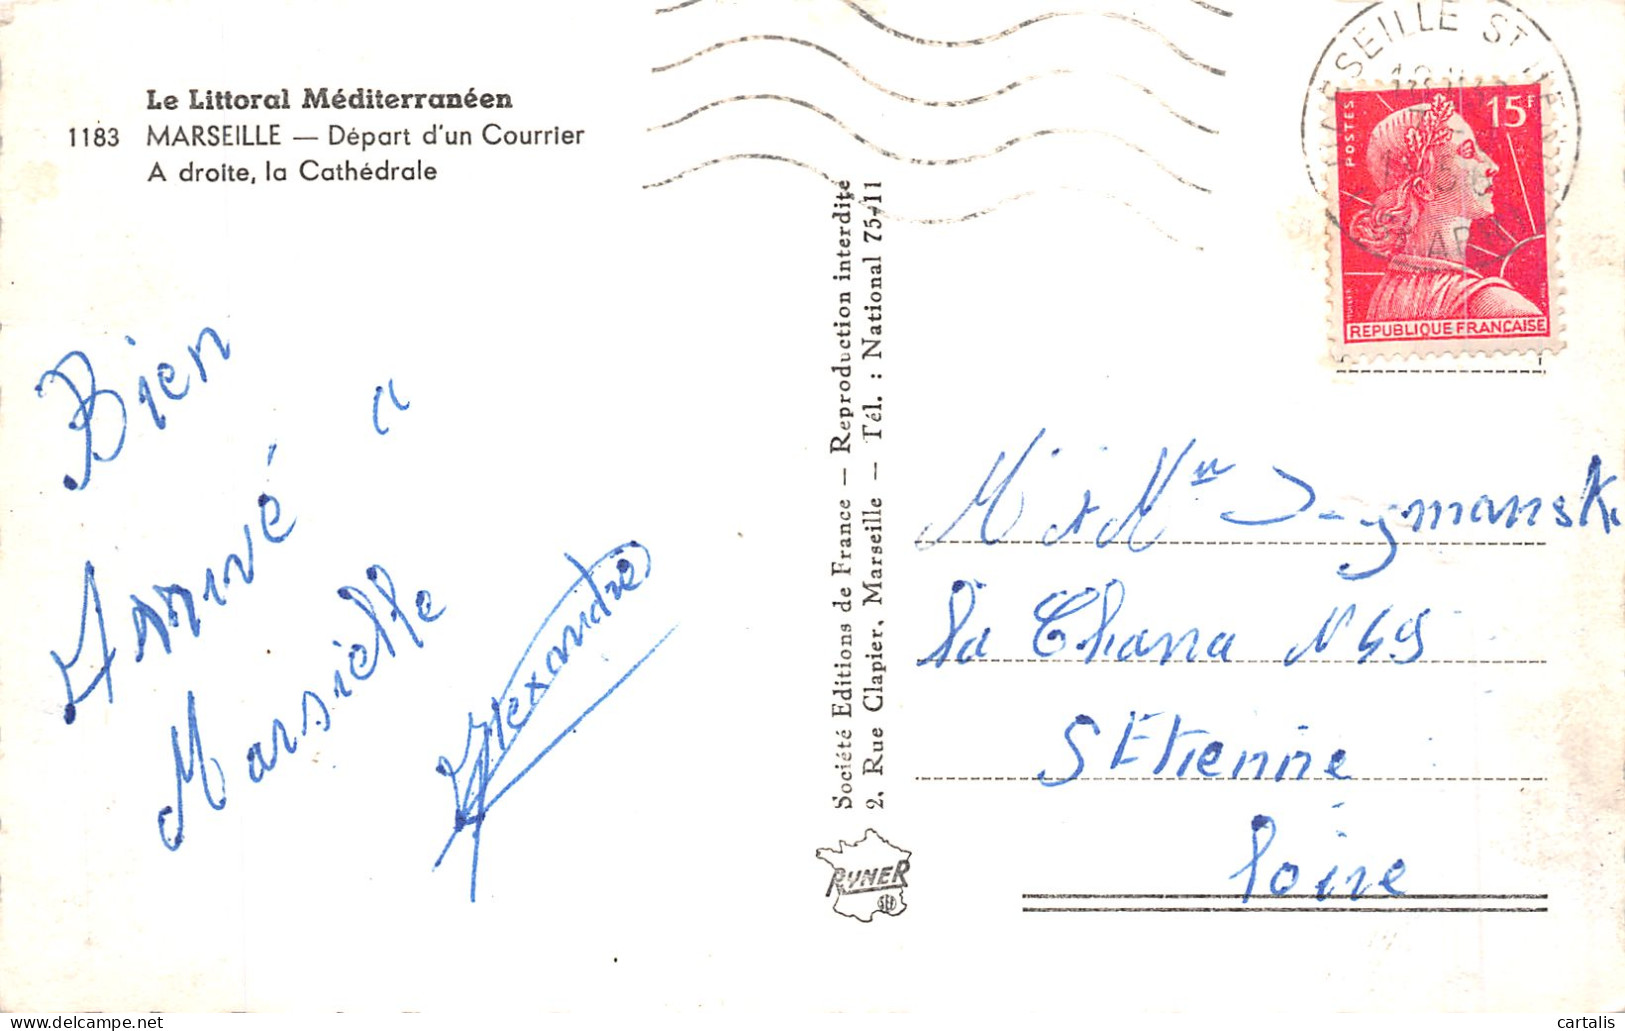 Le Littoral Méditerranéen
1183 MARSEILLE — Départ d'un Courrier
A droite, la Cathédrale
Bien
Arrivé a
Marsielle
Alexandre
Société Editions de France — Reproduction interdite
2, Rue Clapier, Marseille — Tél. : National 75-11
RUNER
SEF
MARSEILLE ST
POSTES
15F
REPUBLIQUE FRANÇAISE
M et Mme
la Chana N
S Etienne
Loire
cartalis
delcampe.net